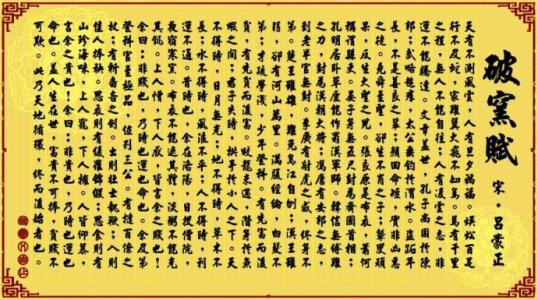 破窯賦
宋·呂蒙正
天有不測風雲，人有旦夕禍福。蜈蚣百足，
行不及蛇；家雞翼大，飛不如鳥。馬有千里
之程，無人不能自往；人有凌雲之志，非
運不能騰達。文章蓋世，孔子尚困於陳
邦；武略超群，太公垂釣於渭水。盜跖年
長，不是善良之輩；顏回命短，實非凶惡
之徒。堯舜至聖，卻生不肖之子；瞽叟頑
呆，反生大聖之兒。張良原是布衣，蕭何
稱謂縣吏。晏子身無五尺，封為齊國首相；
孔明居臥草廬，能作蜀漢軍師。韓信無縛雞
之力，封為漢朝大將；馮唐有安邦之志，
到老半官無封；李廣有射虎之威，終身不
第。楚王雖雄，難免烏江自刎；漢王雖
弱，卻有河山萬里。滿腹經綸，白髮不
第；才疏學淺，少年登科。有先富而後
貧，有先貧而後富。蛟龍未遇，潛身於魚
蝦之間；君子失時，拱手於小人之下。天
不得時，日月無光；地不得時，草木不
長；水不得時，風浪不平；人不得時，利
運不通。昔時也，余在洛陽，日投僧院，
夜宿寒窯。布衣不能遮其體，淡粥不能充
其飢。上人憎，下人厭，皆言余之賤也！
余曰：非賤也，乃時也運也命也。余及第
登科，官至極品，位列三公，有撻百僚之
杖，有斬鄙吝之劍，出則壯士執鞭，入則
佳人捧袂，思衣則有綾羅錦緞，思食則有
山珍海味，上人寵，下人擁，人皆仰慕，
言余之貴也！余曰：非貴也，乃時也運也
命也。蓋人生在世，富貴不可捧，貧賤不
可欺。此乃天地循環，終而復始者也。